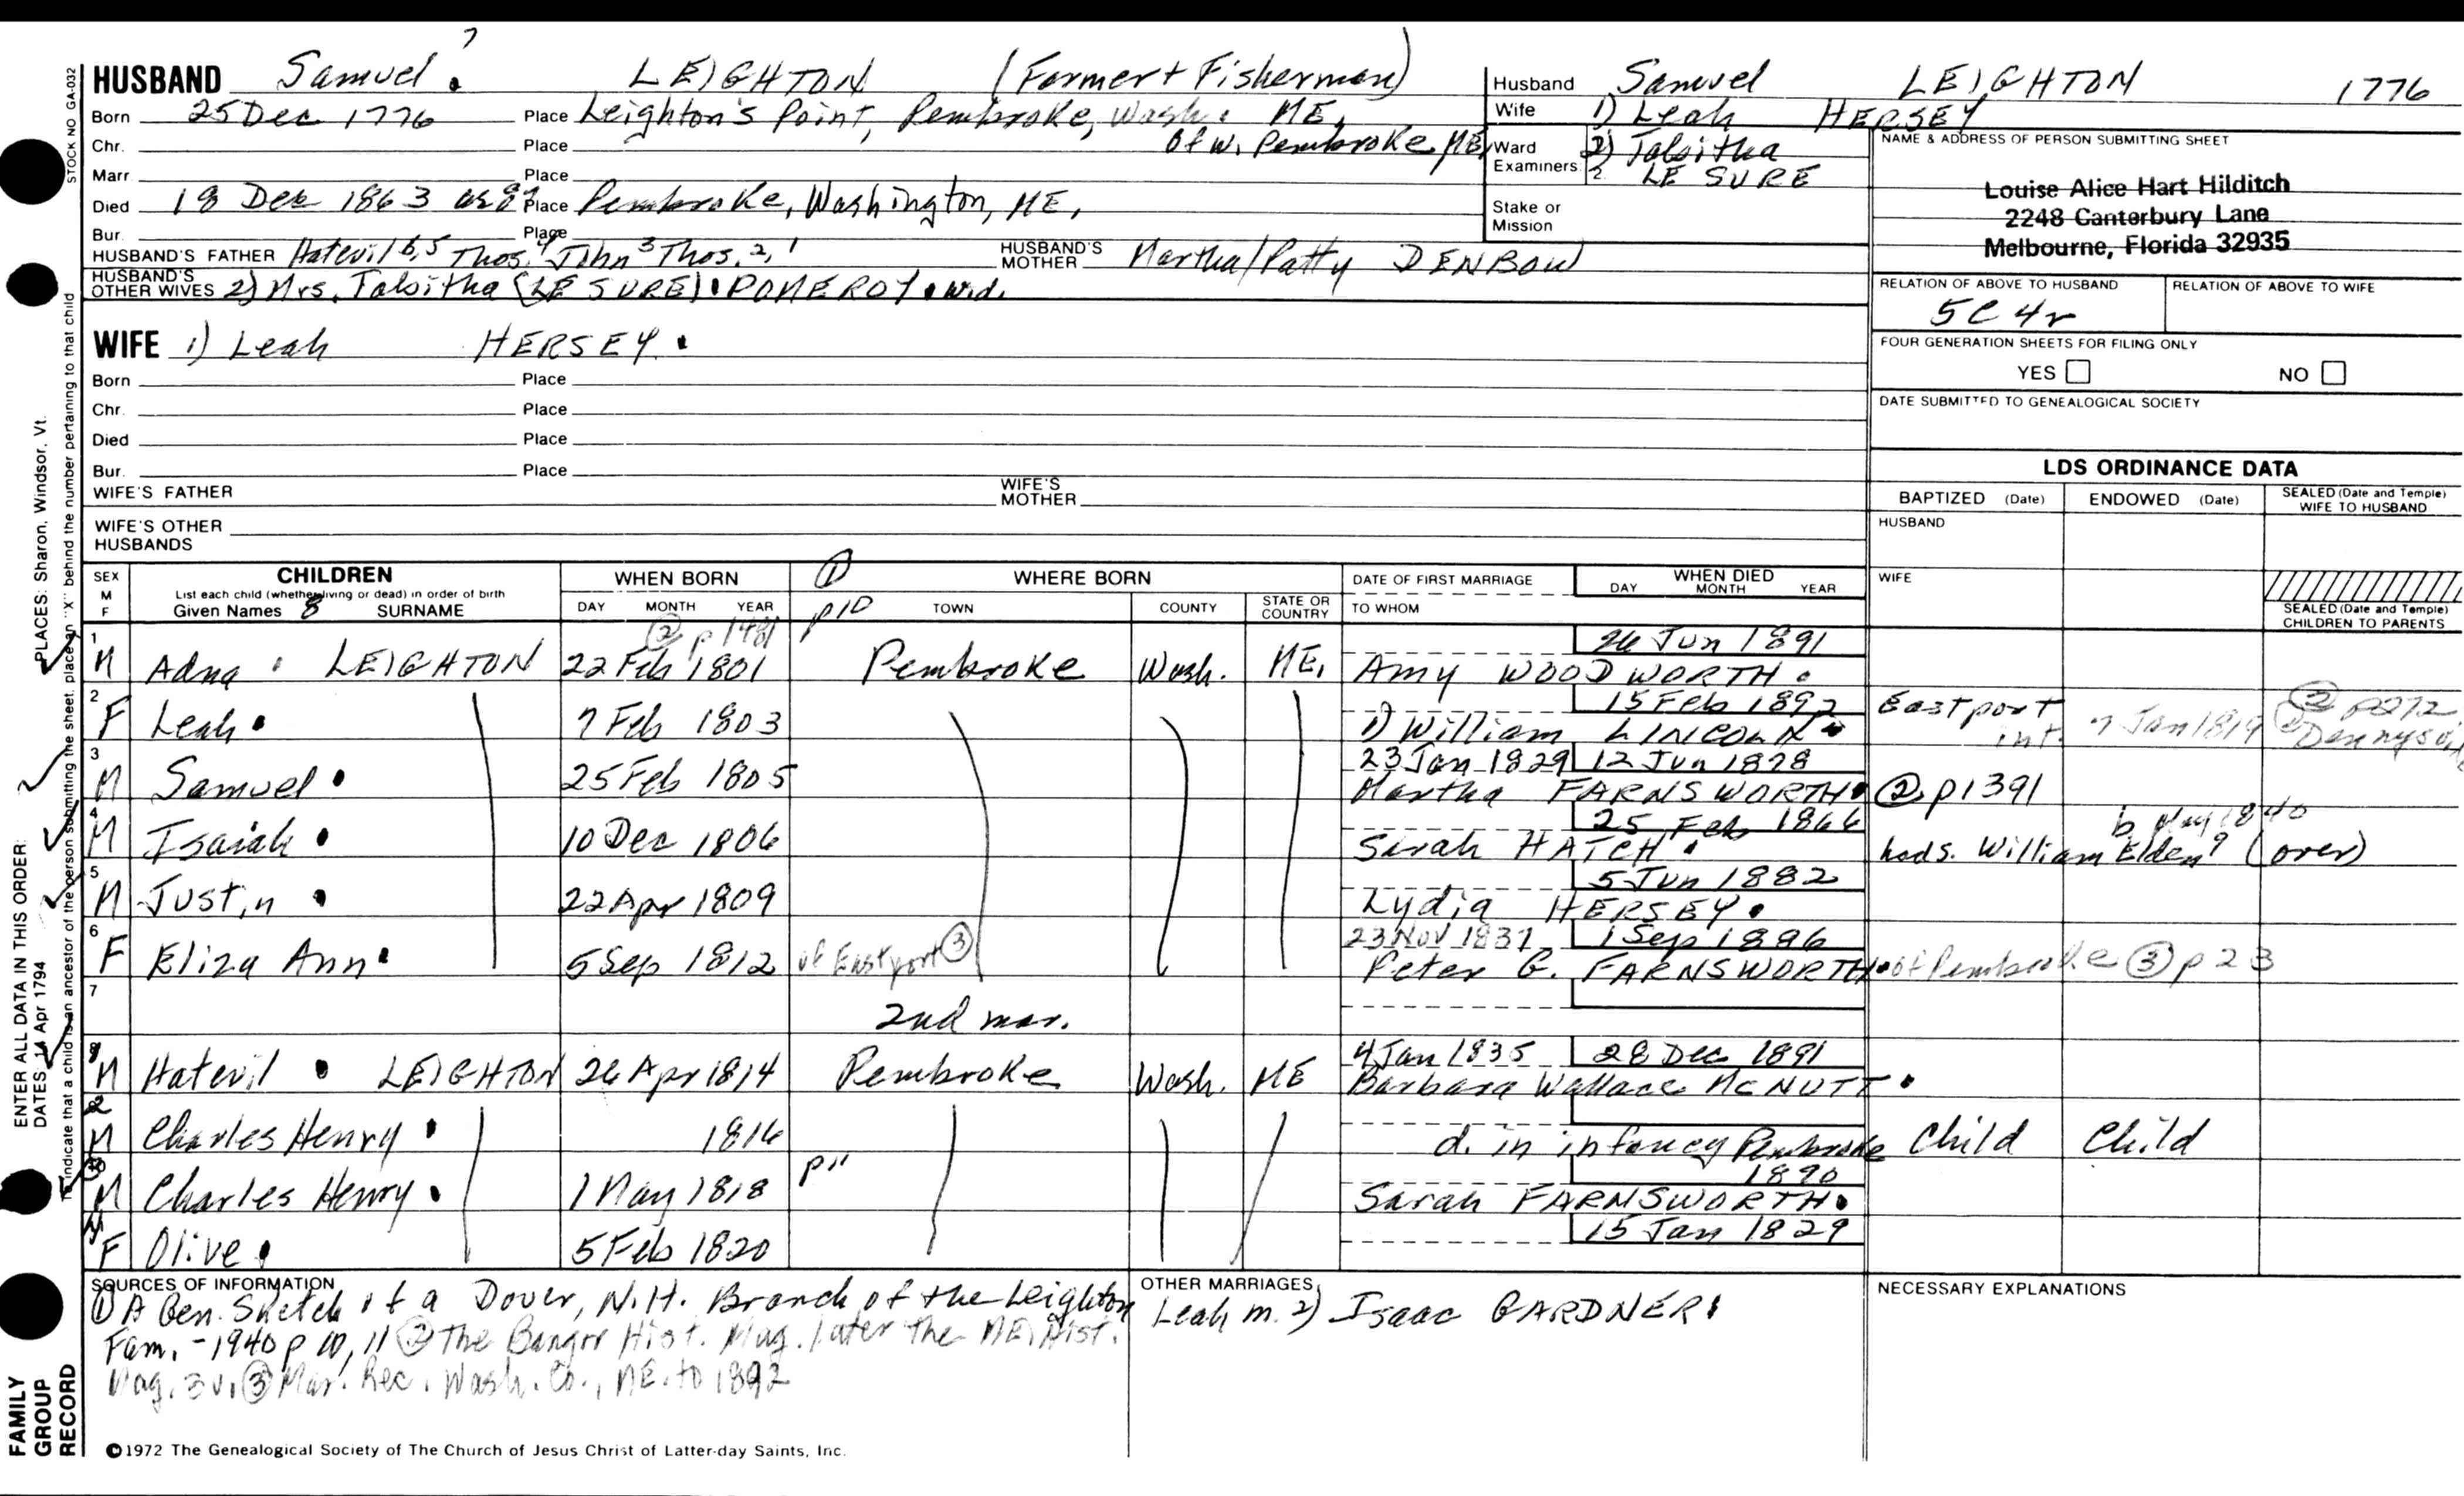 HUSBAND Samuel ? LEIGHTON (Farmer + Fisherman)
Born 25 Dec 1776 Place Leighton's Point, Pembroke, Wash. ME,
Chr. Place Of W. Pembroke ME
Marr. Place
Died 18 Dec 1863 Place Pembroke, Washington, ME,
Bur. Place
HUSBAND'S FATHER Hatevil 6,5 Thos. 4 John 3 Thos. 2, 1 HUSBAND'S MOTHER Martha/Patty DENBOW
HUSBAND'S OTHER WIVES 2) Mrs. Tabitha (LE SURE) POMEROY wid.
WIFE 1) Leah HERSEY
Born Place
Chr. Place
Died Place
Bur. Place
WIFE'S FATHER WIFE'S MOTHER
WIFE'S OTHER HUSBANDS
Husband Samuel LEIGHTON 1776
Wife 1) Leah HERSEY
Ward Examiners 1. 2) Tabitha
2. LE SURE
Stake or Mission
NAME & ADDRESS OF PERSON SUBMITTING SHEET
Louise Alice Hart Hilditch
2248 Canterbury Lane
Melbourne, Florida 32935
RELATION OF ABOVE TO HUSBAND RELATION OF ABOVE TO WIFE
5C 4r
FOUR GENERATION SHEETS FOR FILING ONLY
YES NO
DATE SUBMITTED TO GENEALOGICAL SOCIETY
LDS ORDINANCE DATA
BAPTIZED (Date) ENDOWED (Date) SEALED (Date and Temple) WIFE TO HUSBAND
HUSBAND
WIFE
SEALED (Date and Temple) CHILDREN TO PARENTS
SEX M F CHILDREN WHEN BORN ① WHERE BORN DATE OF FIRST MARRIAGE WHEN DIED
List each child (whether living or dead) in order of birth DAY MONTH YEAR
Given Names 8 SURNAME DAY MONTH YEAR p10 TOWN COUNTY STATE OR COUNTRY TO WHOM
② p 1481
1 26 Jun 1891
M Adna LEIGHTON 22 Feb 1801 Pembroke Wash. ME. Amy WOODWORTH
2 15 Feb 1892
F Leah 7 Feb 1803 1) William LINCOLN Eastport int. 7 Jan 1819 ② p272
3 23 Jan 1829 12 Jun 1878
M Samuel 25 Feb 1805 Martha FARNSWORTH ② p1391
4 25 Feb 1866 b May 1840
M Isaiah 10 Dec 1806 Sarah HATCH hads. William Elden? (over)
5 5 Jun 1882
M Justin 22 Apr 1809 Lydia HERSEY
6 23 Nov 1837 1 Sep 1896
F Eliza Ann 5 Sep 1812 of Eastport ③ Peter G. FARNSWORTH of Pembroke ③ p 23
7
2nd mar.
1 4 Jan 1835 28 Dec 1891
M Hatevil LEIGHTON 26 Apr 1814 Pembroke Wash. ME Barbara Wallace McNUTT
2
M Charles Henry 1816 d. in infancy Pembroke Child Child
1890
M Charles Henry 1 May 1818 p11 Sarah FARNSWORTH
4 15 Jan 1829
F Olive 5 Feb 1820
SOURCES OF INFORMATION
① A Gen. Sketch of a Dover, N.H. Branch of the Leighton
Fam. - 1940 p 10, 11 ② The Bangor Hist. Mag. later the ME. Hist.
Mag. 3 v. ③ Mar. Rec. Wash. Co., ME. to 1892
OTHER MARRIAGES
Leah m. 2) Isaac GARDNER
NECESSARY EXPLANATIONS
©1972 The Genealogical Society of The Church of Jesus Christ of Latter-day Saints, Inc.
STOCK NO GA-032
To indicate that a child is an ancestor of the person submitting the sheet, place an "X" behind the number pertaining to that child
PLACES: Sharon, Windsor, Vt.
ENTER ALL DATA IN THIS ORDER:
DATES 14 Apr 1794
FAMILY
GROUP
RECORD